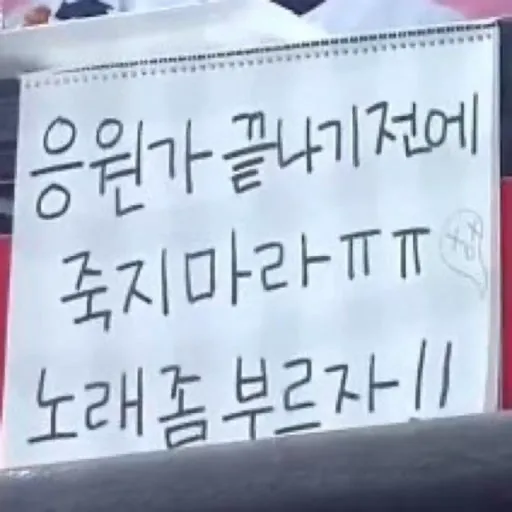 응원가 끝나기전에
죽지마라ㅠㅠ
노래좀 부르자!!